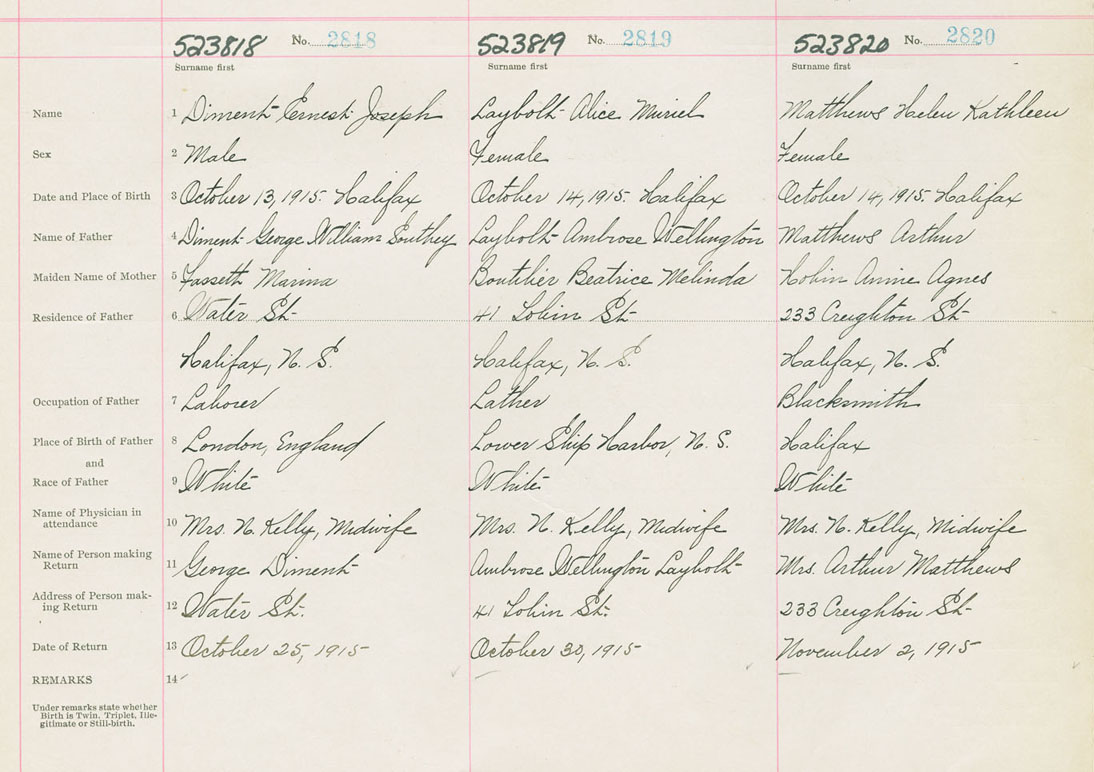 523818 No. 2818 523819 No. 2819 523820 No. 2820
Surname first Surname first Surname first
Name 1 Diment Ernest Joseph Laybolt Alice Muriel Matthews Helen Kathleen
Sex 2 Male Female Female
Date and Place of Birth 3 October 13, 1915. Halifax October 14, 1915. Halifax October 14, 1915. Halifax
Name of Father 4 Diment George William Southey Laybolt Ambrose Wellington Matthews Arthur
Maiden Name of Mother 5 Fassett Marina Boutilier Beatrice Melinda Hobin Annie Agnes
Residence of Father 6 Water St. 41 Lobin St. 233 Creighton St.
Halifax, N. S. Halifax, N. S. Halifax, N. S.
Occupation of Father 7 Laborer Lather Blacksmith
Place of Birth of Father 8 London, England Lower Ship Harbor, N. S. Halifax
and
Race of Father 9 White White White
Name of Physician in
attendance 10 Mrs. N. Kelly, Midwife Mrs. N. Kelly, Midwife Mrs. N. Kelly, Midwife
Name of Person making
Return 11 George Diment Ambrose Wellington Laybolt Mrs. Arthur Matthews
Address of Person mak-
ing Return 12 Water St. 41 Lobin St. 233 Creighton St.
Date of Return 13 October 25, 1915 October 30, 1915 November 2, 1915
REMARKS 14
Under remarks state whether
Birth is Twin, Triplet, Ille-
gitimate or Still-birth.